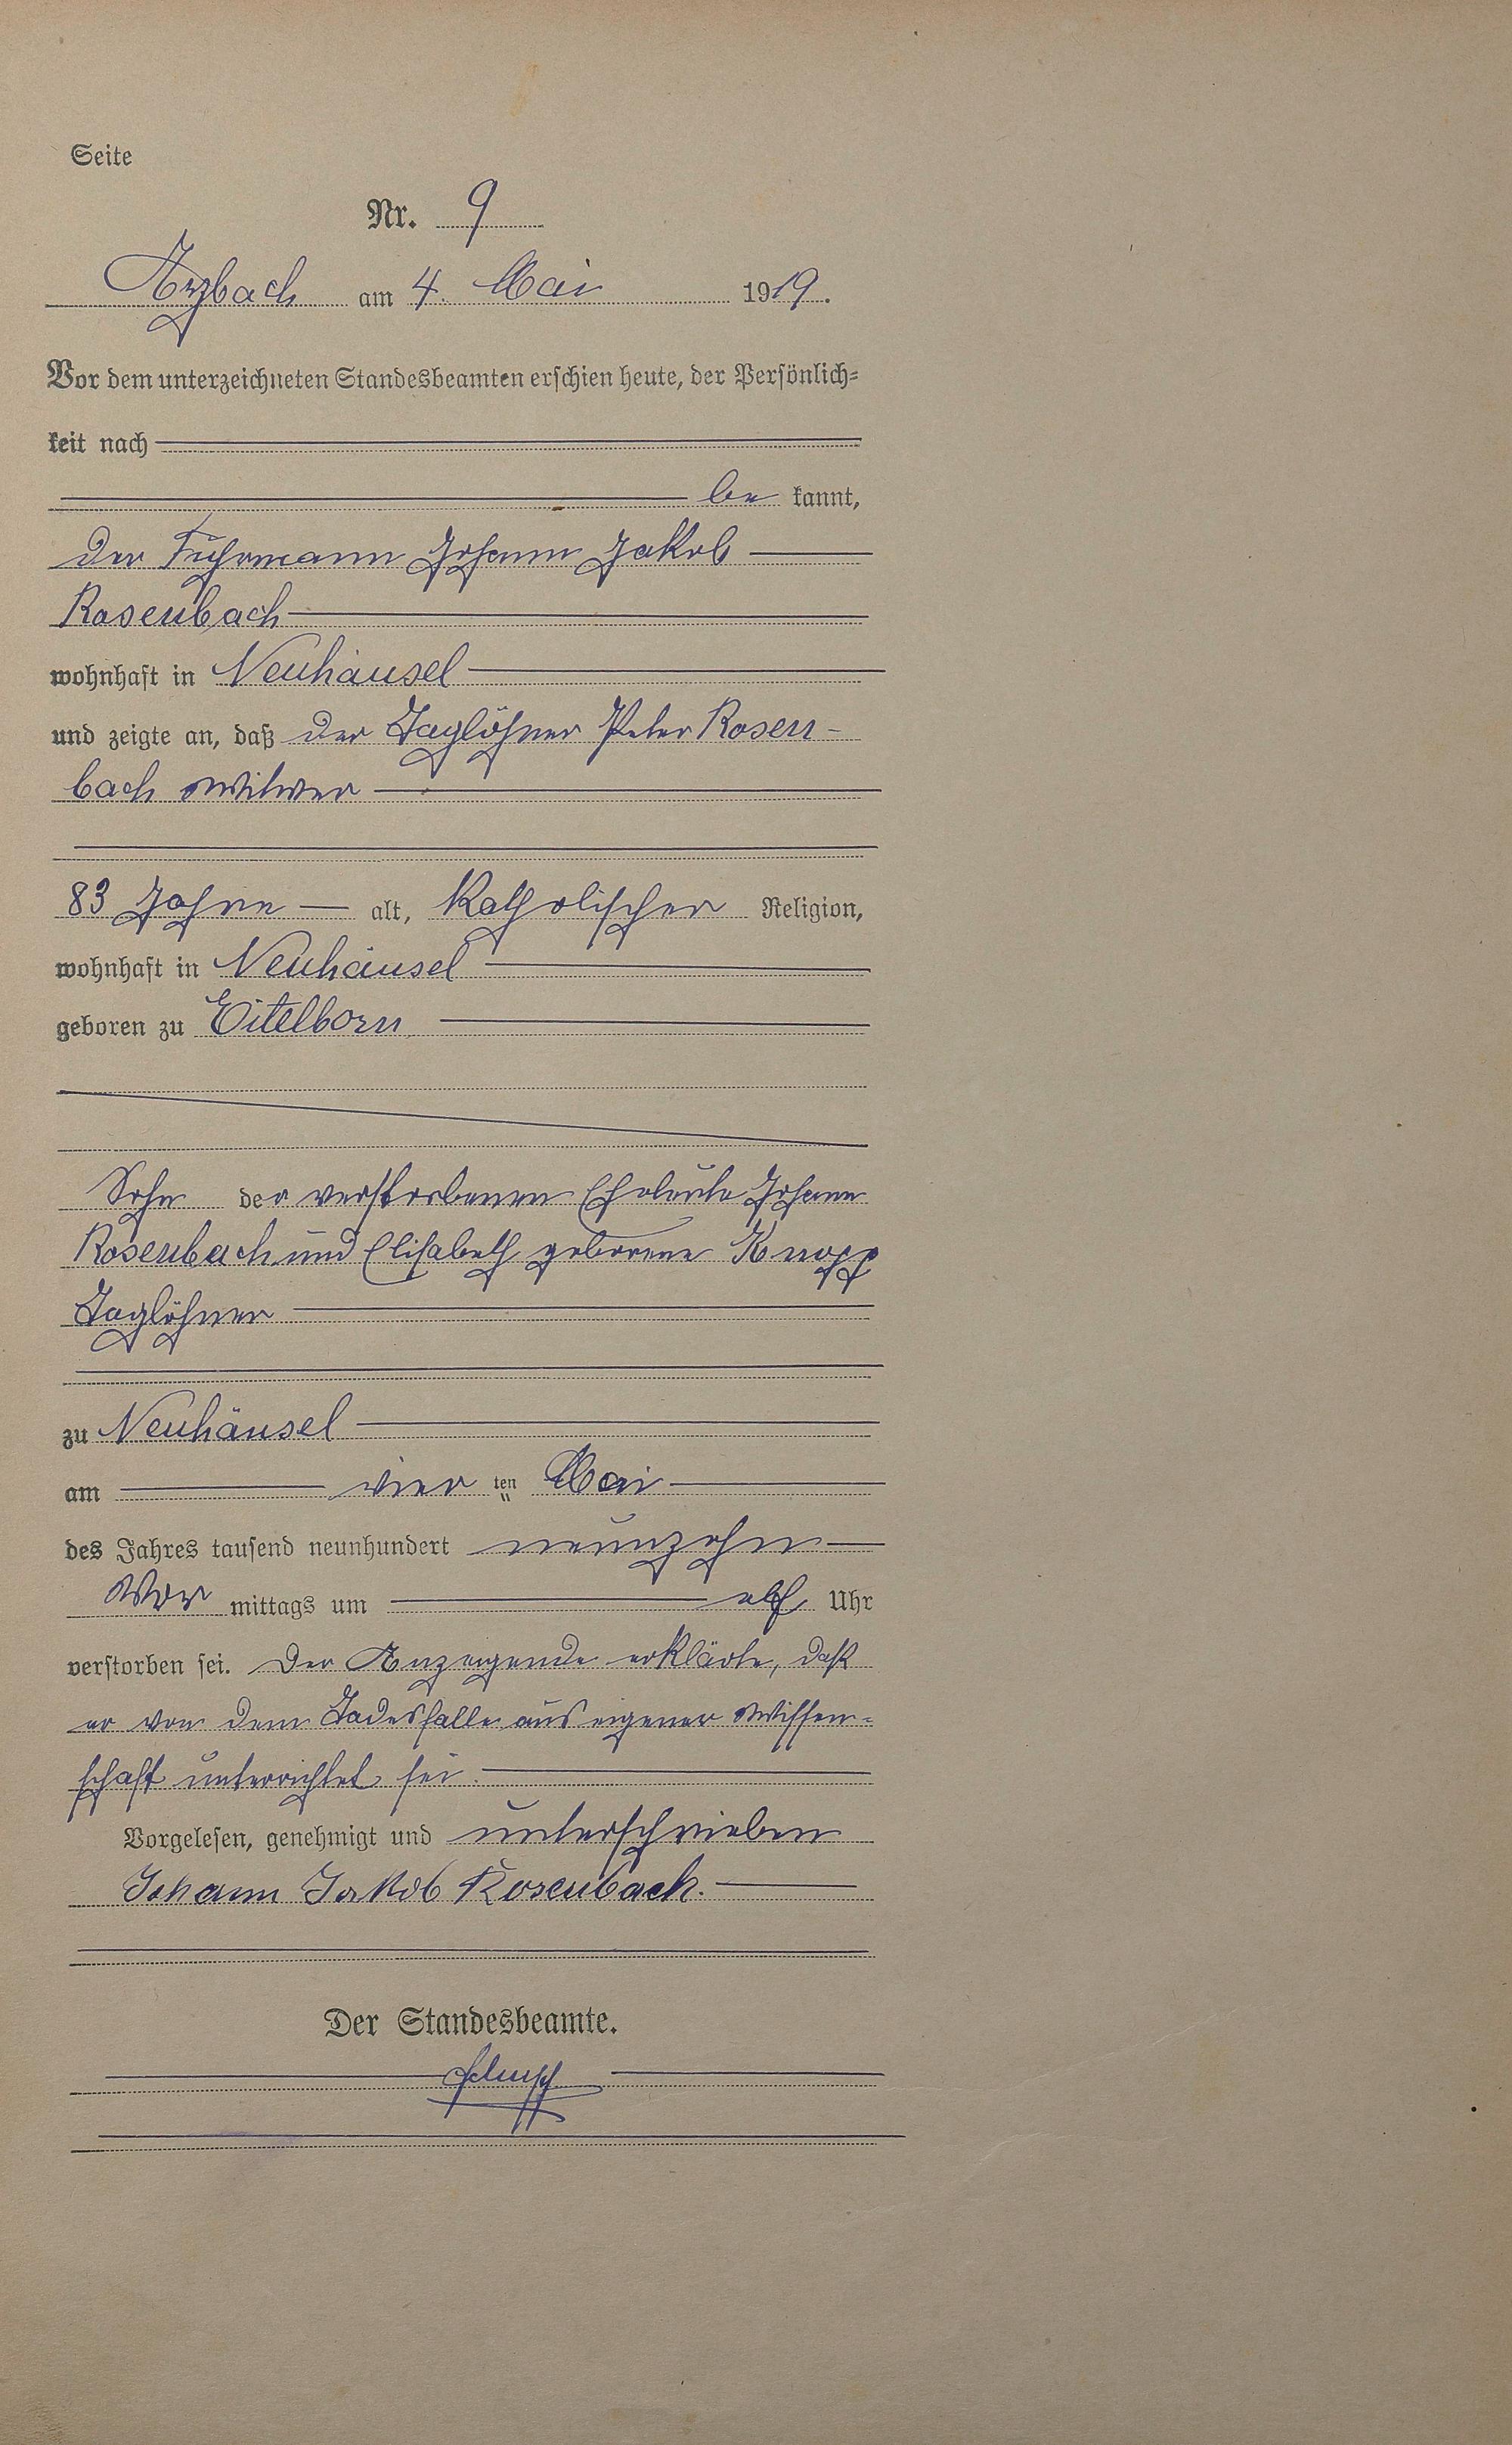 Seite
Nr. 9
Arzbach am 4. Mai 1919.
Vor dem unterzeichneten Standesbeamten erschien heute, der Persönlich-
keit nach
be kannt,
der Fuhrmann Johann Jakob
Rosenbach
wohnhaft in Neuhäusel
und zeigte an, daß der Taglöhner Peter Rosen-
bach Witwer
83 Jahre alt, katholischer Religion,
wohnhaft in Neuhäusel
geboren zu Eitelborn
Sohn der verstorbenen Eheleute Johann
Rosenbach und Elisabeth geborene Knopp
Taglöhner
zu Neuhäusel
am vier ten Mai
des Jahres tausend neunhundert neunzehn
Vor mittags um elf Uhr
verstorben sei. Der Anzeigende erklärte, daß
er von dem Todesfalle aus eigener Wissen-
schaft unterrichtet sei.
Vorgelesen, genehmigt und unterschrieben
Johann Jakob Rosenbach.
Der Standesbeamte.